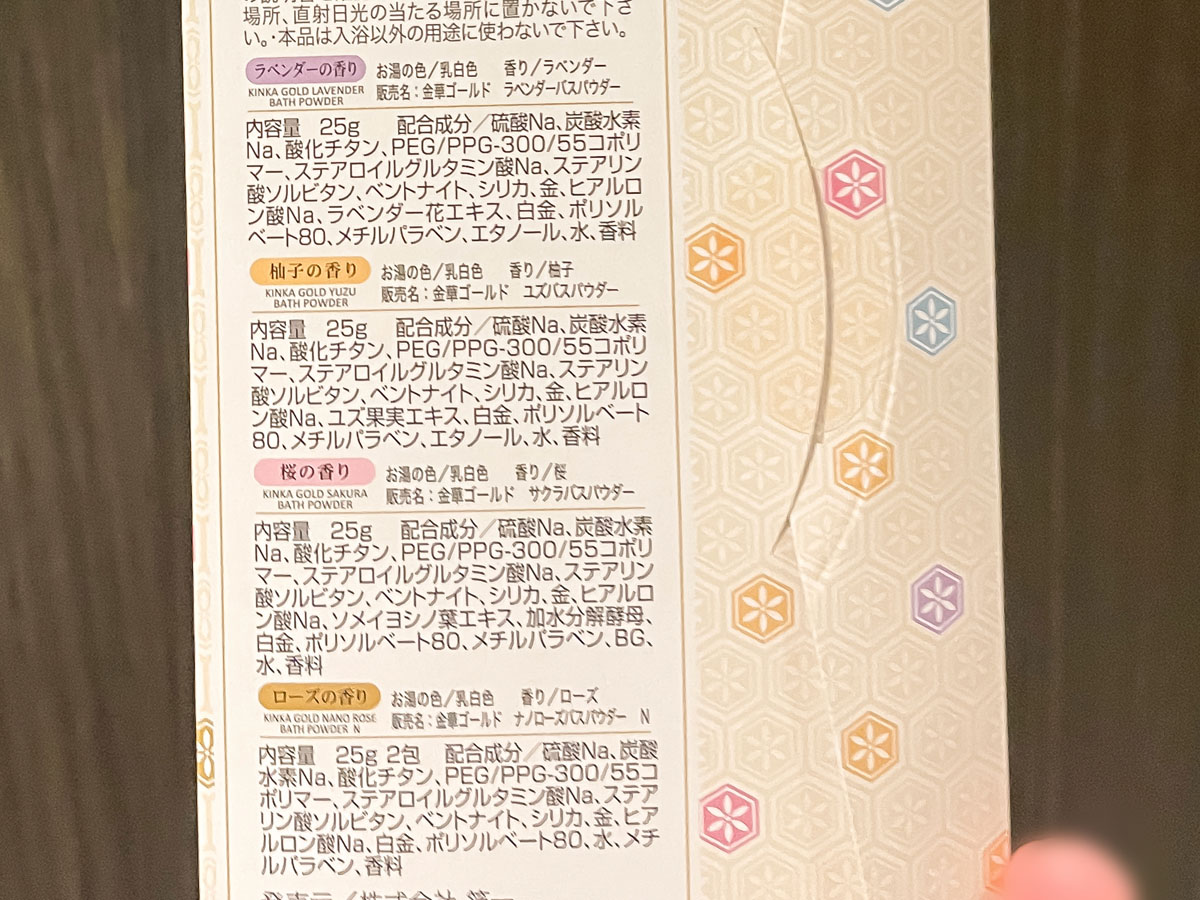 場所、直射日光の当たる場所に置かないで下さ
い。・本品は入浴以外の用途に使わないで下さい。
ラベンダーの香り お湯の色/乳白色 香り/ラベンダー
KINKA GOLD LAVENDER
BATH POWDER
販売名：金華ゴールド ラベンダーバスパウダー
内容量 25g 配合成分/硫酸Na、炭酸水素
Na、酸化チタン、PEG/PPG-300/55コポリ
マー、ステアロイルグルタミン酸Na、ステアリン
酸ソルビタン、ベントナイト、シリカ、金、ヒアルロ
ン酸Na、ラベンダー花エキス、白金、ポリソル
ベート80、メチルパラベン、エタノール、水、香料
柚子の香り お湯の色/乳白色 香り/柚子
KINKA GOLD YUZU
BATH POWDER
販売名：金華ゴールド ユズバスパウダー
内容量 25g 配合成分/硫酸Na、炭酸水素
Na、酸化チタン、PEG/PPG-300/55コポリ
マー、ステアロイルグルタミン酸Na、ステアリン
酸ソルビタン、ベントナイト、シリカ、金、ヒアルロ
ン酸Na、ユズ果実エキス、白金、ポリソルベート
80、メチルパラベン、エタノール、水、香料
桜の香り お湯の色/乳白色 香り/桜
KINKA GOLD SAKURA
BATH POWDER
販売名：金華ゴールド サクラバスパウダー
内容量 25g 配合成分/硫酸Na、炭酸水素
Na、酸化チタン、PEG/PPG-300/55コポリ
マー、ステアロイルグルタミン酸Na、ステアリン
酸ソルビタン、ベントナイト、シリカ、金、ヒアルロ
ン酸Na、ソメイヨシノ葉エキス、加水分解酵母、
白金、ポリソルベート80、メチルパラベン、BG、
水、香料
ローズの香り お湯の色/乳白色 香り/ローズ
KINKA GOLD NANO ROSE
BATH POWDER N
販売名：金華ゴールド ナノローズバスパウダー N
内容量 25g 2包 配合成分/硫酸Na、炭酸
水素Na、酸化チタン、PEG/PPG-300/55コ
ポリマー、ステアロイルグルタミン酸Na、ステア
リン酸ソルビタン、ベントナイト、シリカ、金、ヒア
ルロン酸Na、白金、ポリソルベート80、水、メチ
ルパラベン、香料